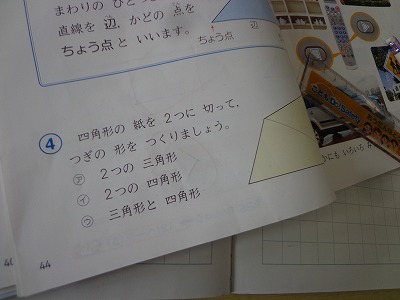 まわりの ひとつ
直線を 辺、かどの 点を
ちょう点と いいます。
辺
ちょう点
4 四角形の 紙を 2つに 切って、
つぎの 形を つくりましょう。
ア 2つの 三角形
イ 2つの 四角形
ウ 三角形と 四角形
44